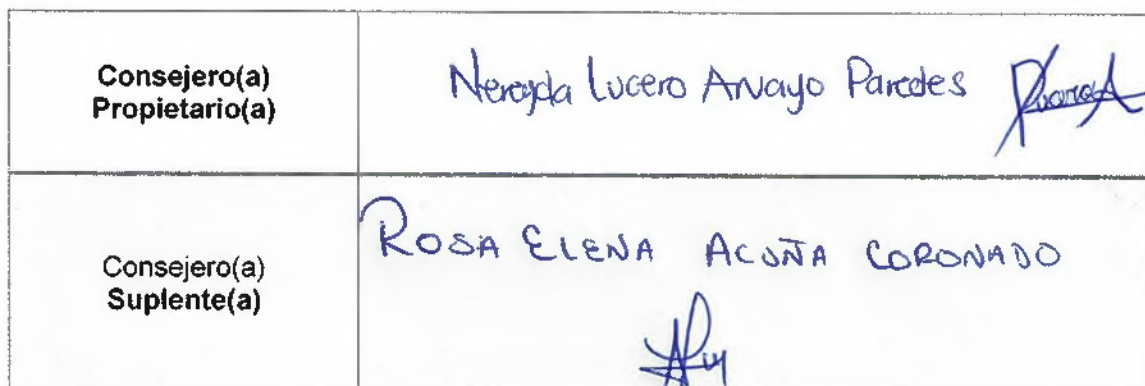 Consejero(a)
Propietario(a)
Nereyda Lucero Arvayo Paredes
Consejero(a)
Suplente(a)
ROSA ELENA ACUÑA CORONADO